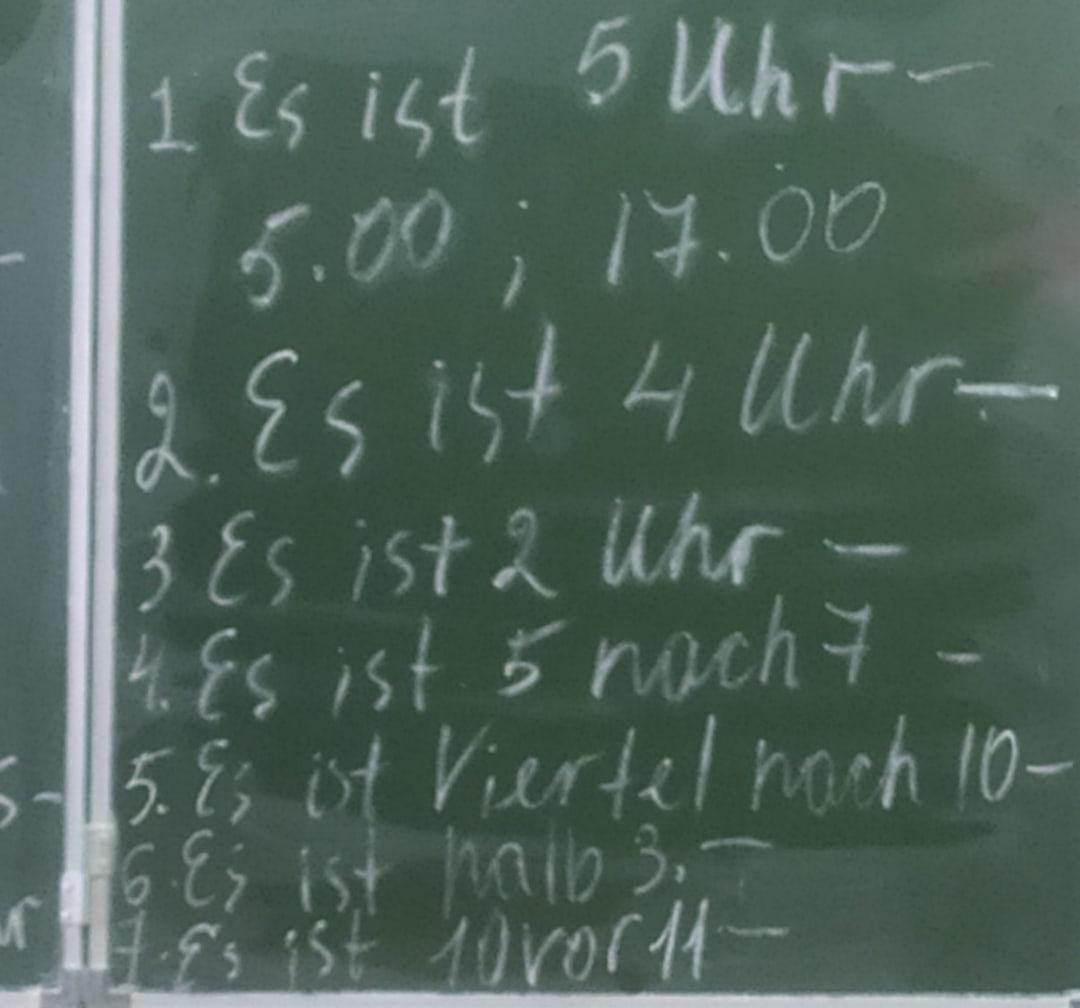 1 Es ist 5 Uhr -
5.00 ; 17.00
2. Es ist 4 Uhr -
3 Es ist 2 Uhr -
4. Es ist 5 nach 7 -
5. Es ist Viertel nach 10 -
6. Es ist halb 3. -
7. Es ist 10 vor 11 -